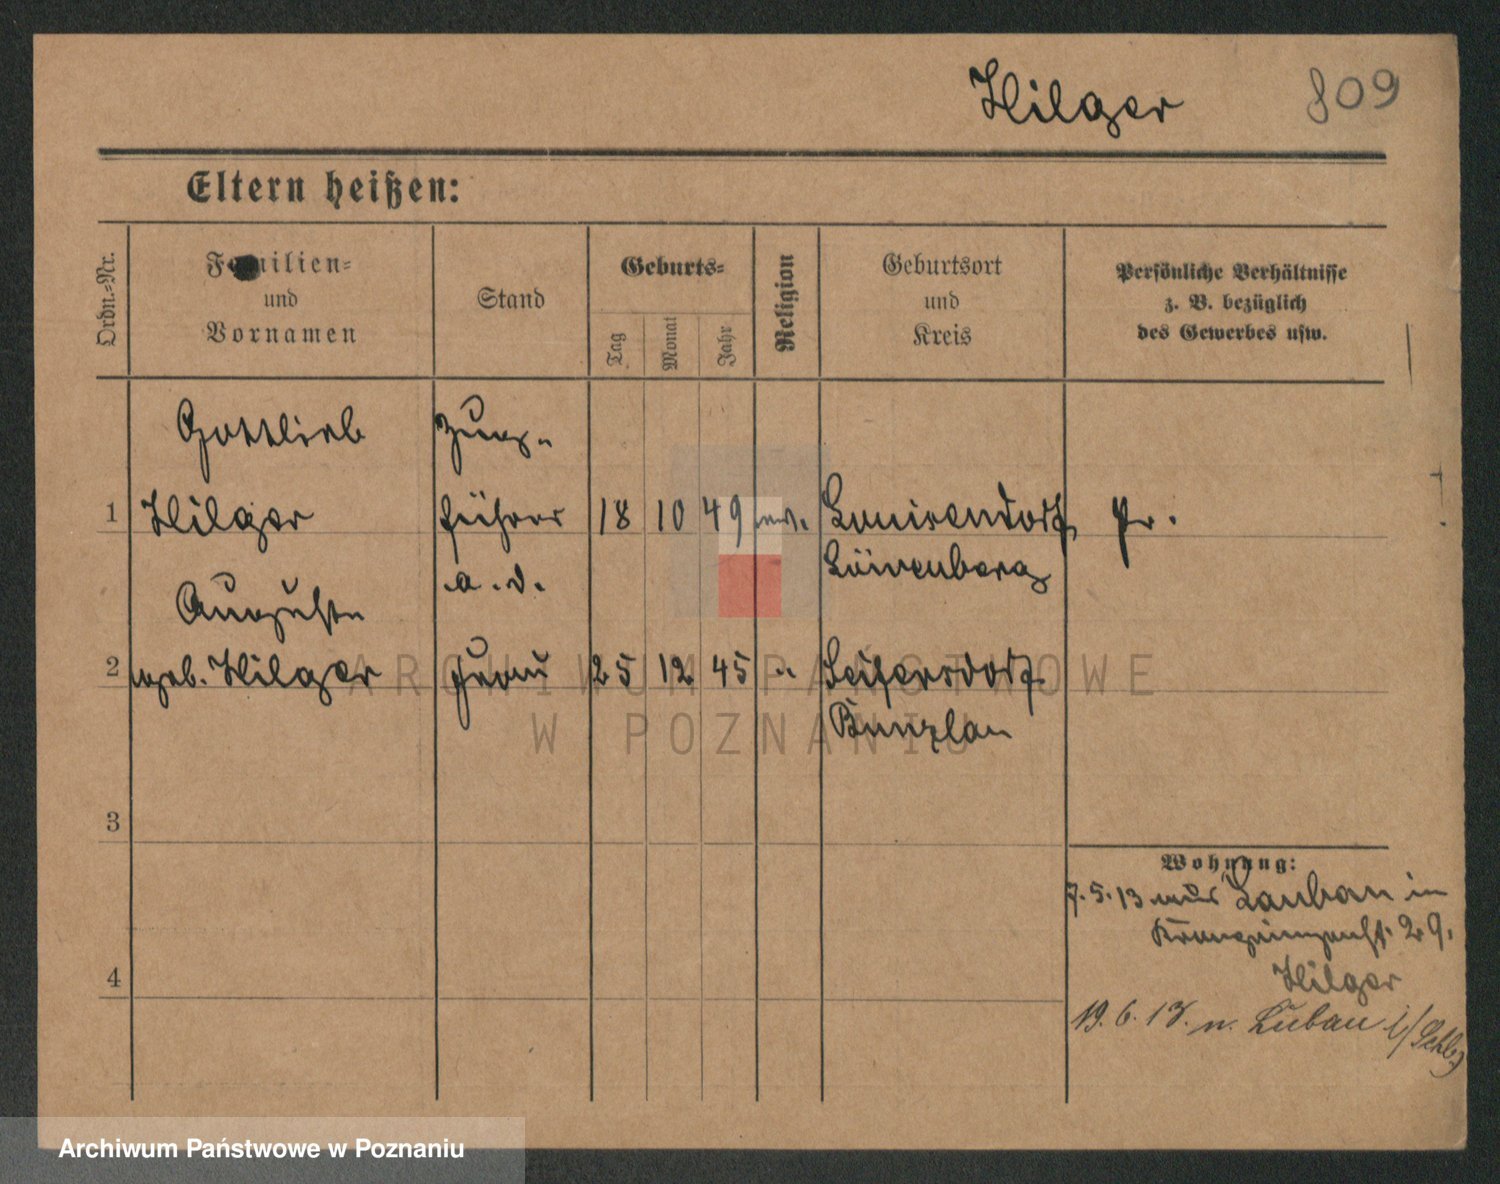 Hilger 809
Eltern heißen:
Ordn.-Nr.
Familien-
und
Vornamen
Stand
Geburts-
Tag
Monat
Jahr
Religion
Geburtsort
und
Kreis
Persönliche Verhältnisse
z. B. bezüglich
des Gewerbes usw.
Gottlieb Zug-
1 Hilger führer 18 10 49 ev. Louisendorf Pr.
a. D. Löwenberg
Auguste
2 geb. Hilger Frau 25 12 45 " Seifersdorf
Bunzlau
3
Wohnung:
7.5.13 aus Lauban in
29.
4 Hilger
19.6.13. n. Lauban i/Schles
ARCHIWUM PAŃSTWOWE
W POZNANIU
Archiwum Państwowe w Poznaniu